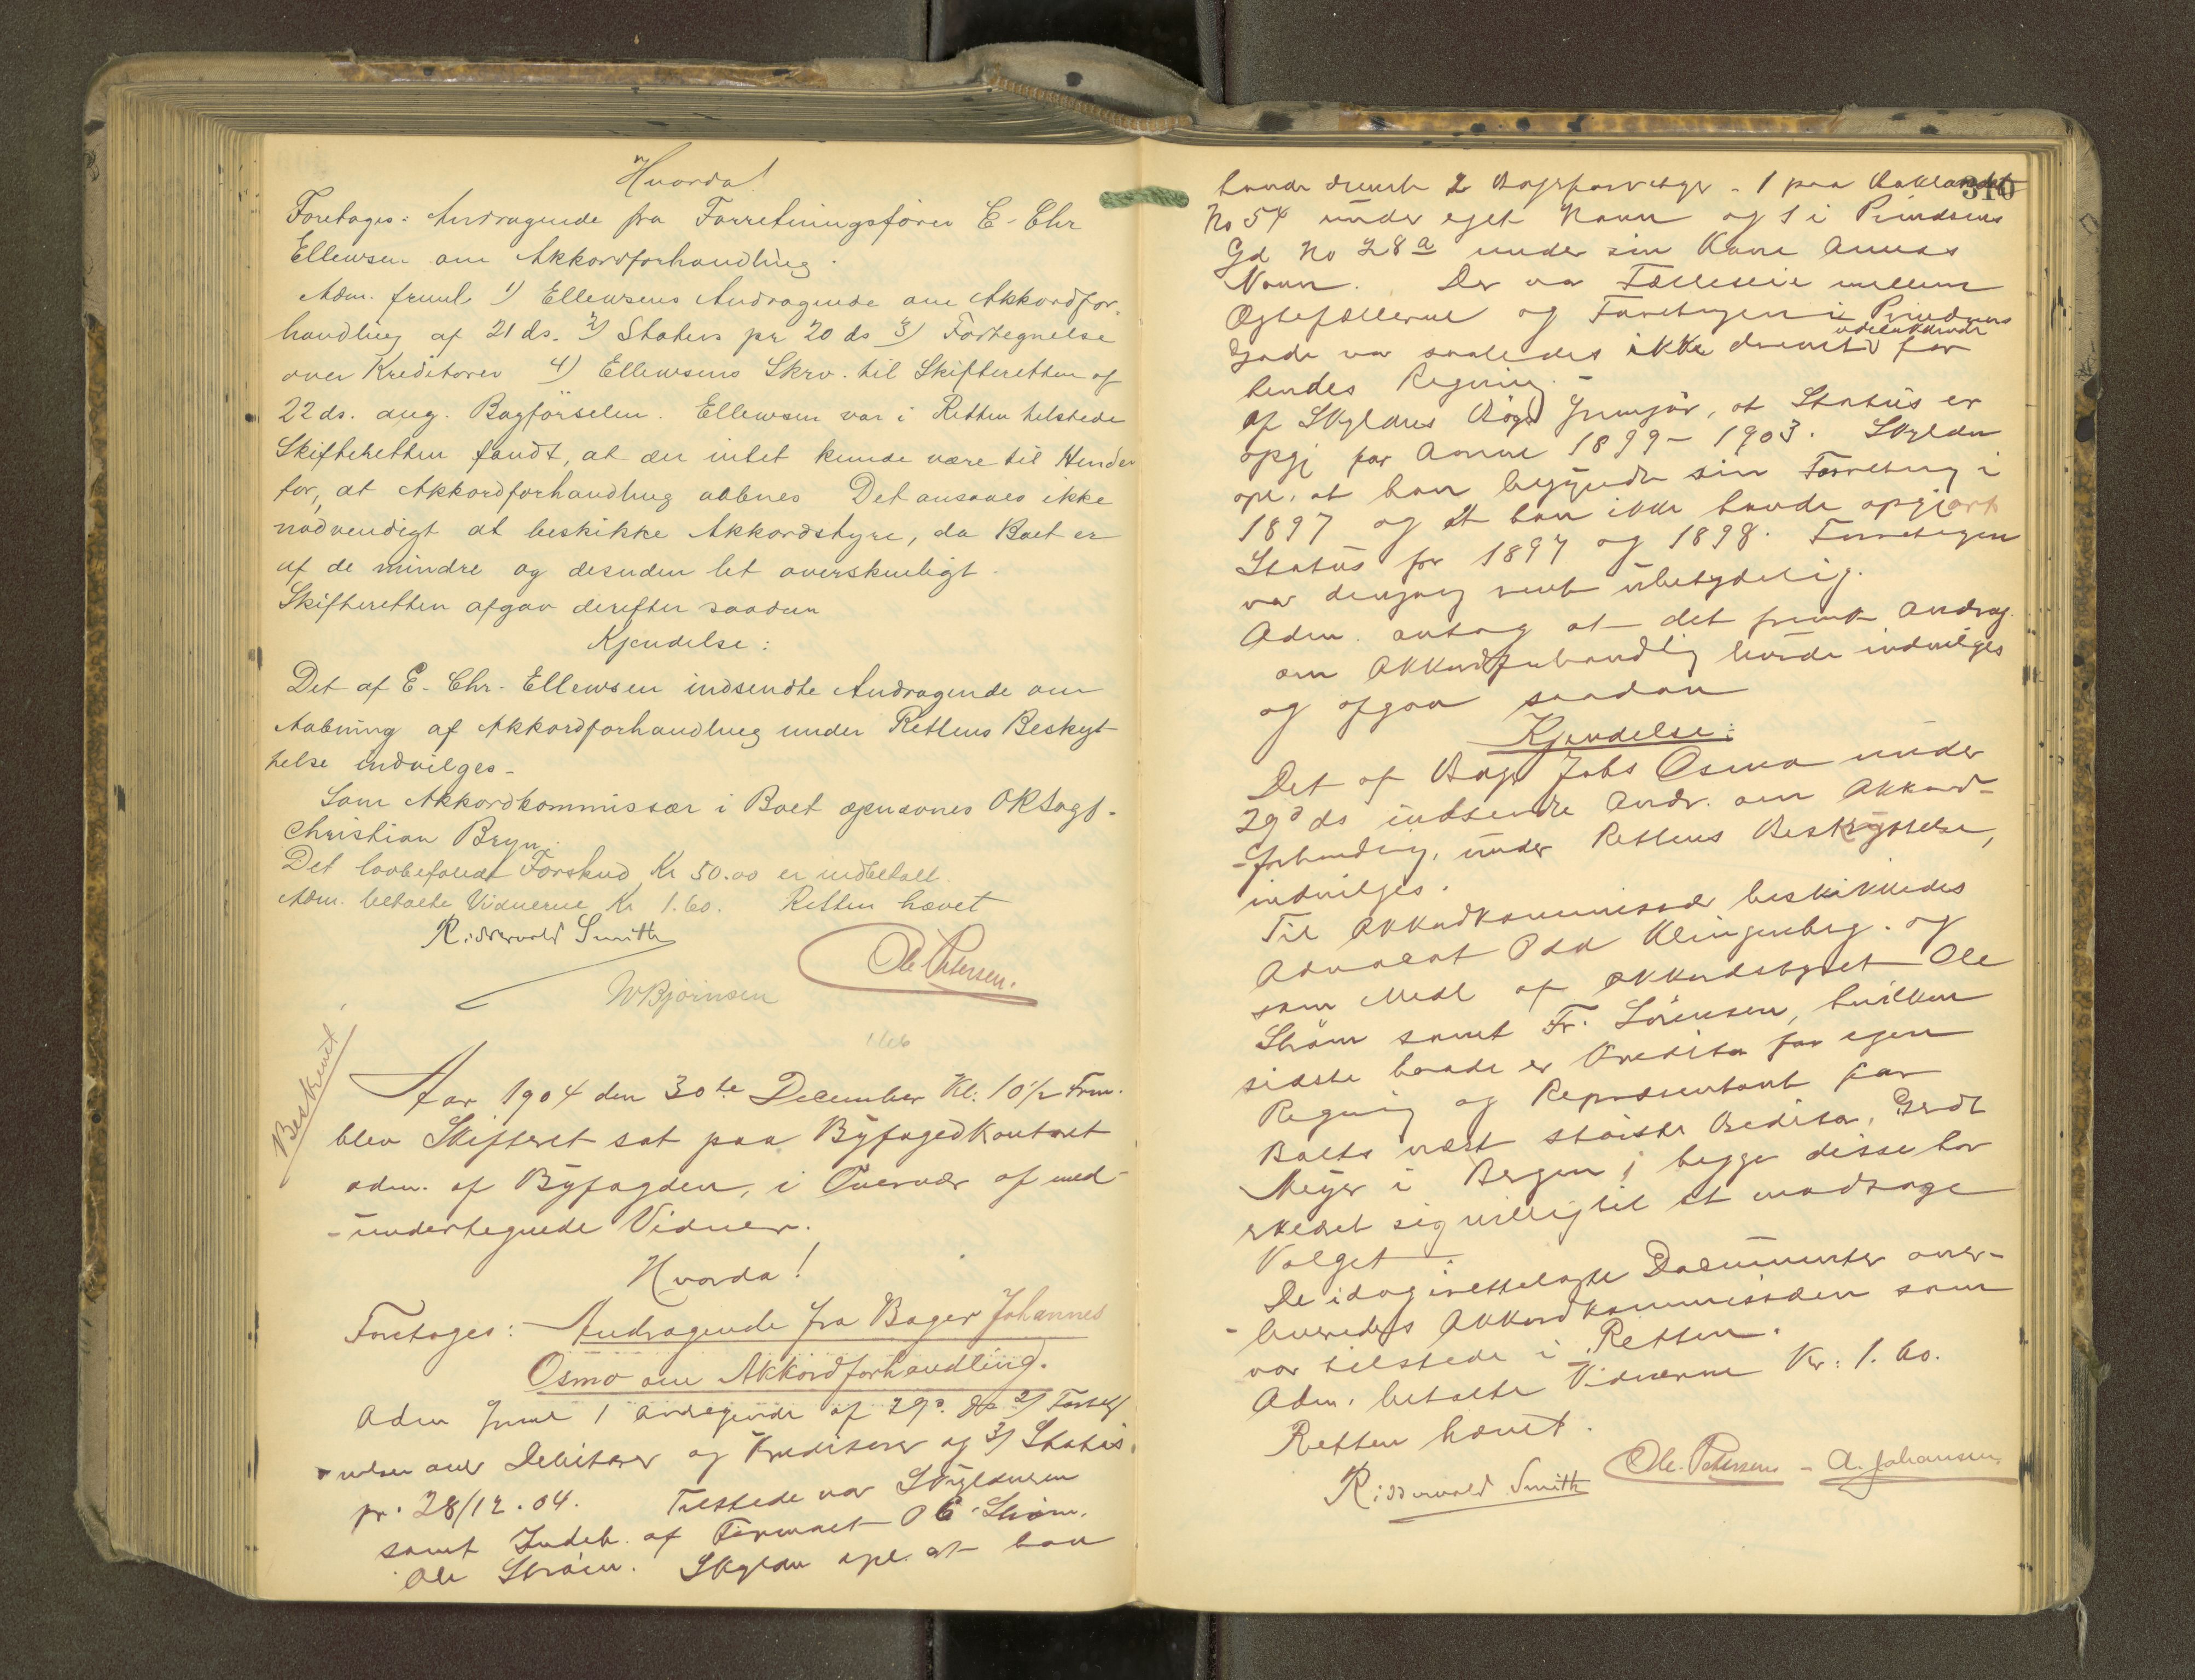 Hvorda!
Foretages: Andragende fra Forretningsfører E. Chr
Ellewsen om Akkordforhandling.
Adm. freml 1) Ellewsens Andragende om Akkordfor-
handling af 21 ds. 2) Status pr 20 ds 3) Fortegnelse
over Kreditorer 4) Ellewsens Skrv. til Skifteretten af
22 ds. ang. Bogførselen. Ellewsen var i Retten tilstede
Skifteretten fandt, at der intet kunde være til Hinder
for, at Akkordforhandling aabnes Det ansaaes ikke
nødvendigt at beskikke Akkordstyre, da Boet er
af de mindre og desuden let overskueligt.
Skifteretten afgav derefter saadan
Kjendelse:
Det af E. Chr. Ellewsen indsendte Andragende om
Aabning af Akkordforhandling under Rettens Beskyt-
telse indvilges.
Som Akkordkommissær i Boet opnævnes ORSagf.
Christian Bryn.
Det lovbefalede Forskud Kr 50.00 er indbetalt.
Adm. betalte Vidnerne Kr 1.60. Retten hævet
Ridderwold Smith
Ole Petersen.
W Bjørnsen
Beskrevet
Aar 1904 den 30te December Kl: 10½ Frm.
blev Skifteret sat paa Byfogedkontoret
adm. af Byfogden, i Overvær af med-
-undertegnede Vidner.
Hvorda!
Foretages: Andragende fra Bager Johannes
Osmo om Akkordforhandling.
Adm freml 1 Andragende af 29d ds 2) Forteg
-nelse over Debitorer og Kreditorer og 3) Status
pr. 28/12.04. Tilstede var Skyldneren
samt Indeh. af Firmaet O C Strøm.
Ole Strøm. Skyldn opl. at han
310
havde drevet 2 Bagerforretgr - 1 paa Baklandet
No 54 under eget Navn og 1 i Prindsens
Gd No 28a under sin Kone Annas
Navn. Der var Fælleseie mellem
Ægtefællerne og Forretngen i Prindsens
udelukkende
Gade var saaledes ikke drevet for
hendes Regning.
Af Skyldnrs Bøger fremgår, at Status er
opgj for Aarene 1899 - 1903. Skyldn
opl. at han begyndte sin Forretning i
1897 og at han ikke havde opgjort
Status for 1897 og 1898. Forretngen
var dengang rent ubetydelig.
Adm. antog at det fremk Andrag.
om Akkordforhandlig burde indvilges
og afgav saadan
Kjendelse:
Det af Bager Johs Osmo under
29d ds indsendte Andr. om Akkord-
-forhandling, under Rettens Beskyttelse,
indvilges.
Til Akkordkommissær beskikkedes
Advokat Odd Klingenberg. og
som Medl af Akkordstyret Ole
Strøm samt Fr. Sørensen, hvilken
sidste baade er Kreditor for egen
Regning og Repræsentant for
Boets næst største Kreditor, Gerdt
Meyer i Bergen; begge disse har
erklæret sig villig til at modtage
Valget.
De idag irettelagte Documenter over-
-leveredes Akkordkommissæren som
var tilstede i Retten.
Adm. betalte Vidnerne Kr: 1.60.
Retten hævet.
Ridderwold Smith Ole Petersen - A. Johansen